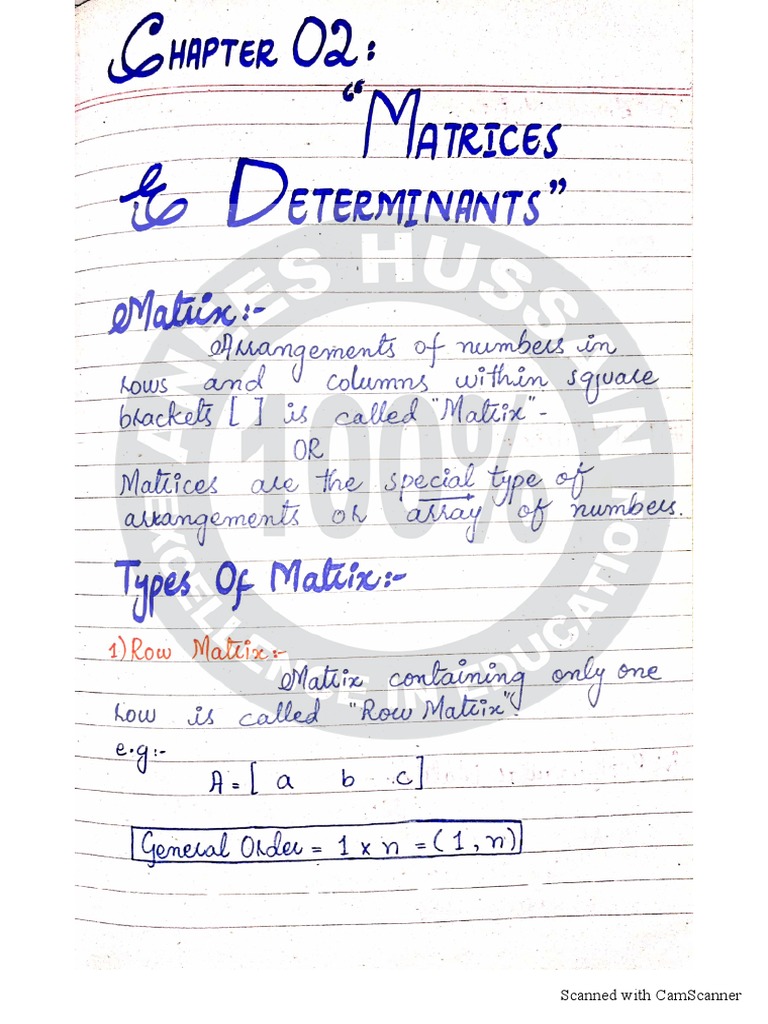 CHAPTER 02:
"MATRICES
& DETERMINANTS"
Matrix:-
Arrangements of numbers in
rows and columns within square
brackets [ ] is called "Matrix"-
OR
Matrices are the special type of
arrangements or array of numbers.
Types Of Matrix:-
1) Row Matrix:-
Matrix containing only one
row is called "Row Matrix".
e.g:-
A = [ a b c ]
General Order = 1 × n = (1, n)
ANEES HUSSAIN
100%
EXCELLENCE IN EDUCATION
Scanned with CamScanner